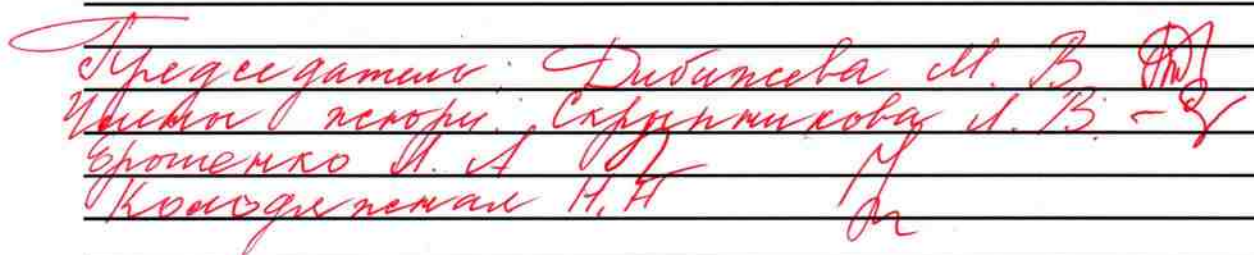 Председатель: Дибижева М. В.
Члены жюри: Скрупникова Л. В. -
Ерошенко И. А
Колодяжная Н. П